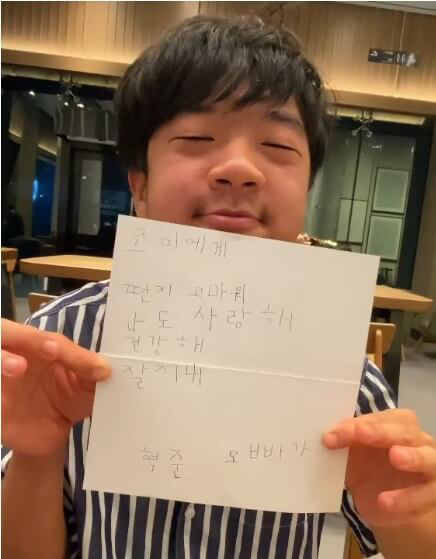 조미에게
편지 고마워
나도 사랑해
건강해
잘지내
혁준 오빠가